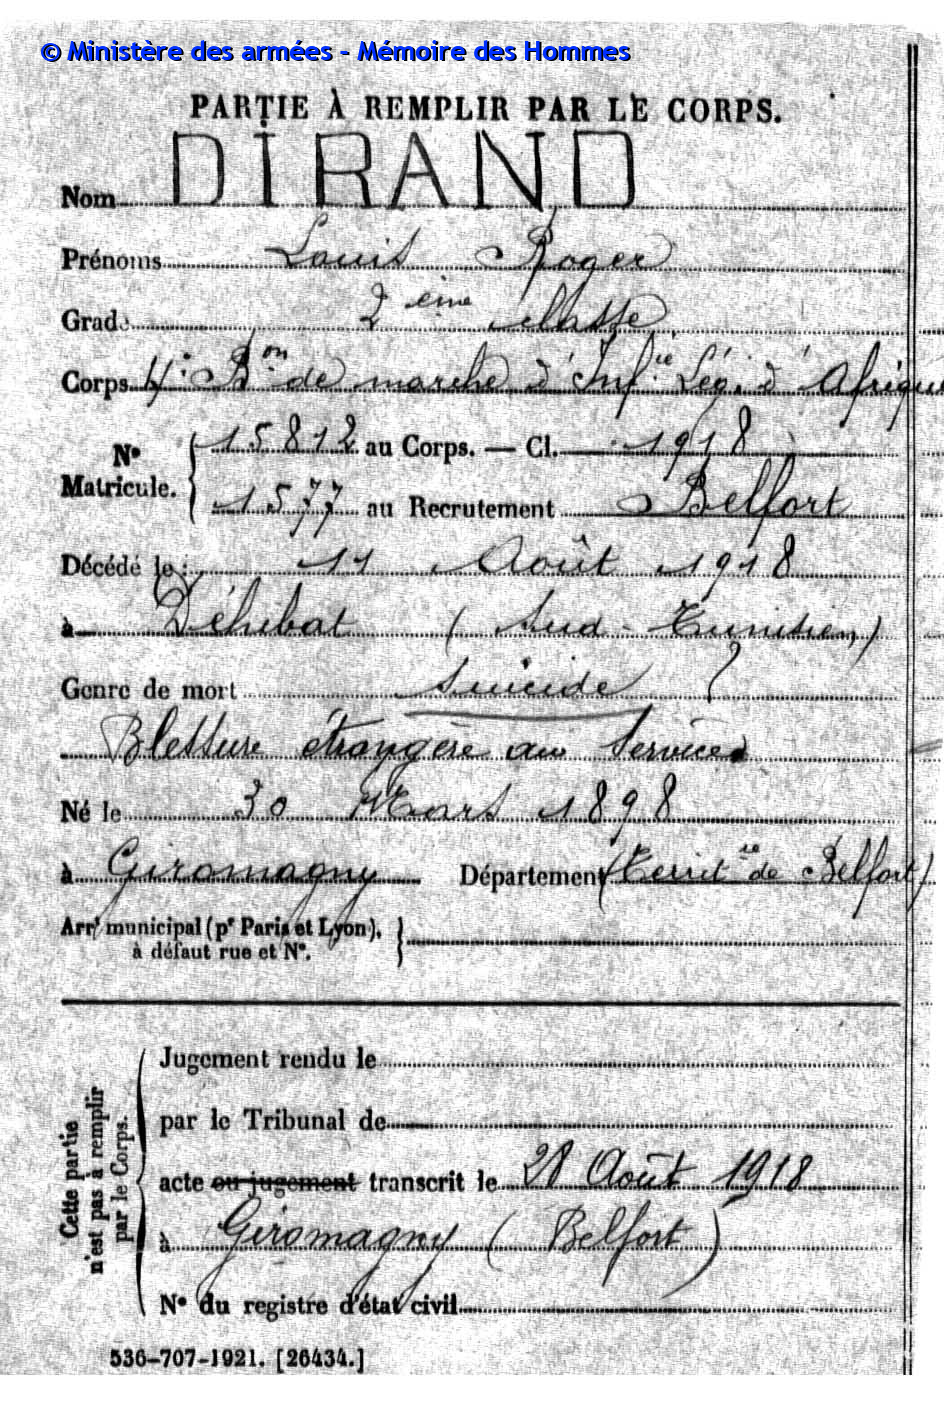 © Ministère des armées - Mémoire des Hommes
PARTIE À REMPLIR PAR LE CORPS.
Nom DIRAND
Prénoms Louis Roger
Grade 2ème classe
Corps 4e Bon de marche d'Infie Lég. d'Afrique
No Matricule. { 15812 au Corps. — Cl. 1918
1577 au Recrutement Belfort
Décédé le : 11 Août 1918
à Déhibat (Sud-Tunisien)
Genre de mort suicide ?
Blessure étrangère au Service
Né le 30 Mars 1898
à Giromagny Département (Territre de Belfort)
Arrt municipal (pr Paris et Lyon), à défaut rue et No. }
Cette partie n'est pas à remplir par le Corps.
Jugement rendu le
par le Tribunal de
acte ou jugement transcrit le 28 Août 1918
à Giromagny (Belfort)
No du registre d'état civil
536-707-1921. [26434.]